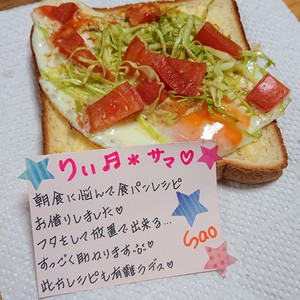 りぃ♬*サマ♡
朝食に悩んで食パンレシピ
お借りしました♡
フタをして放置で出来る…
すっごく助かります♡
此方レシピも有難うデス♥
Sao